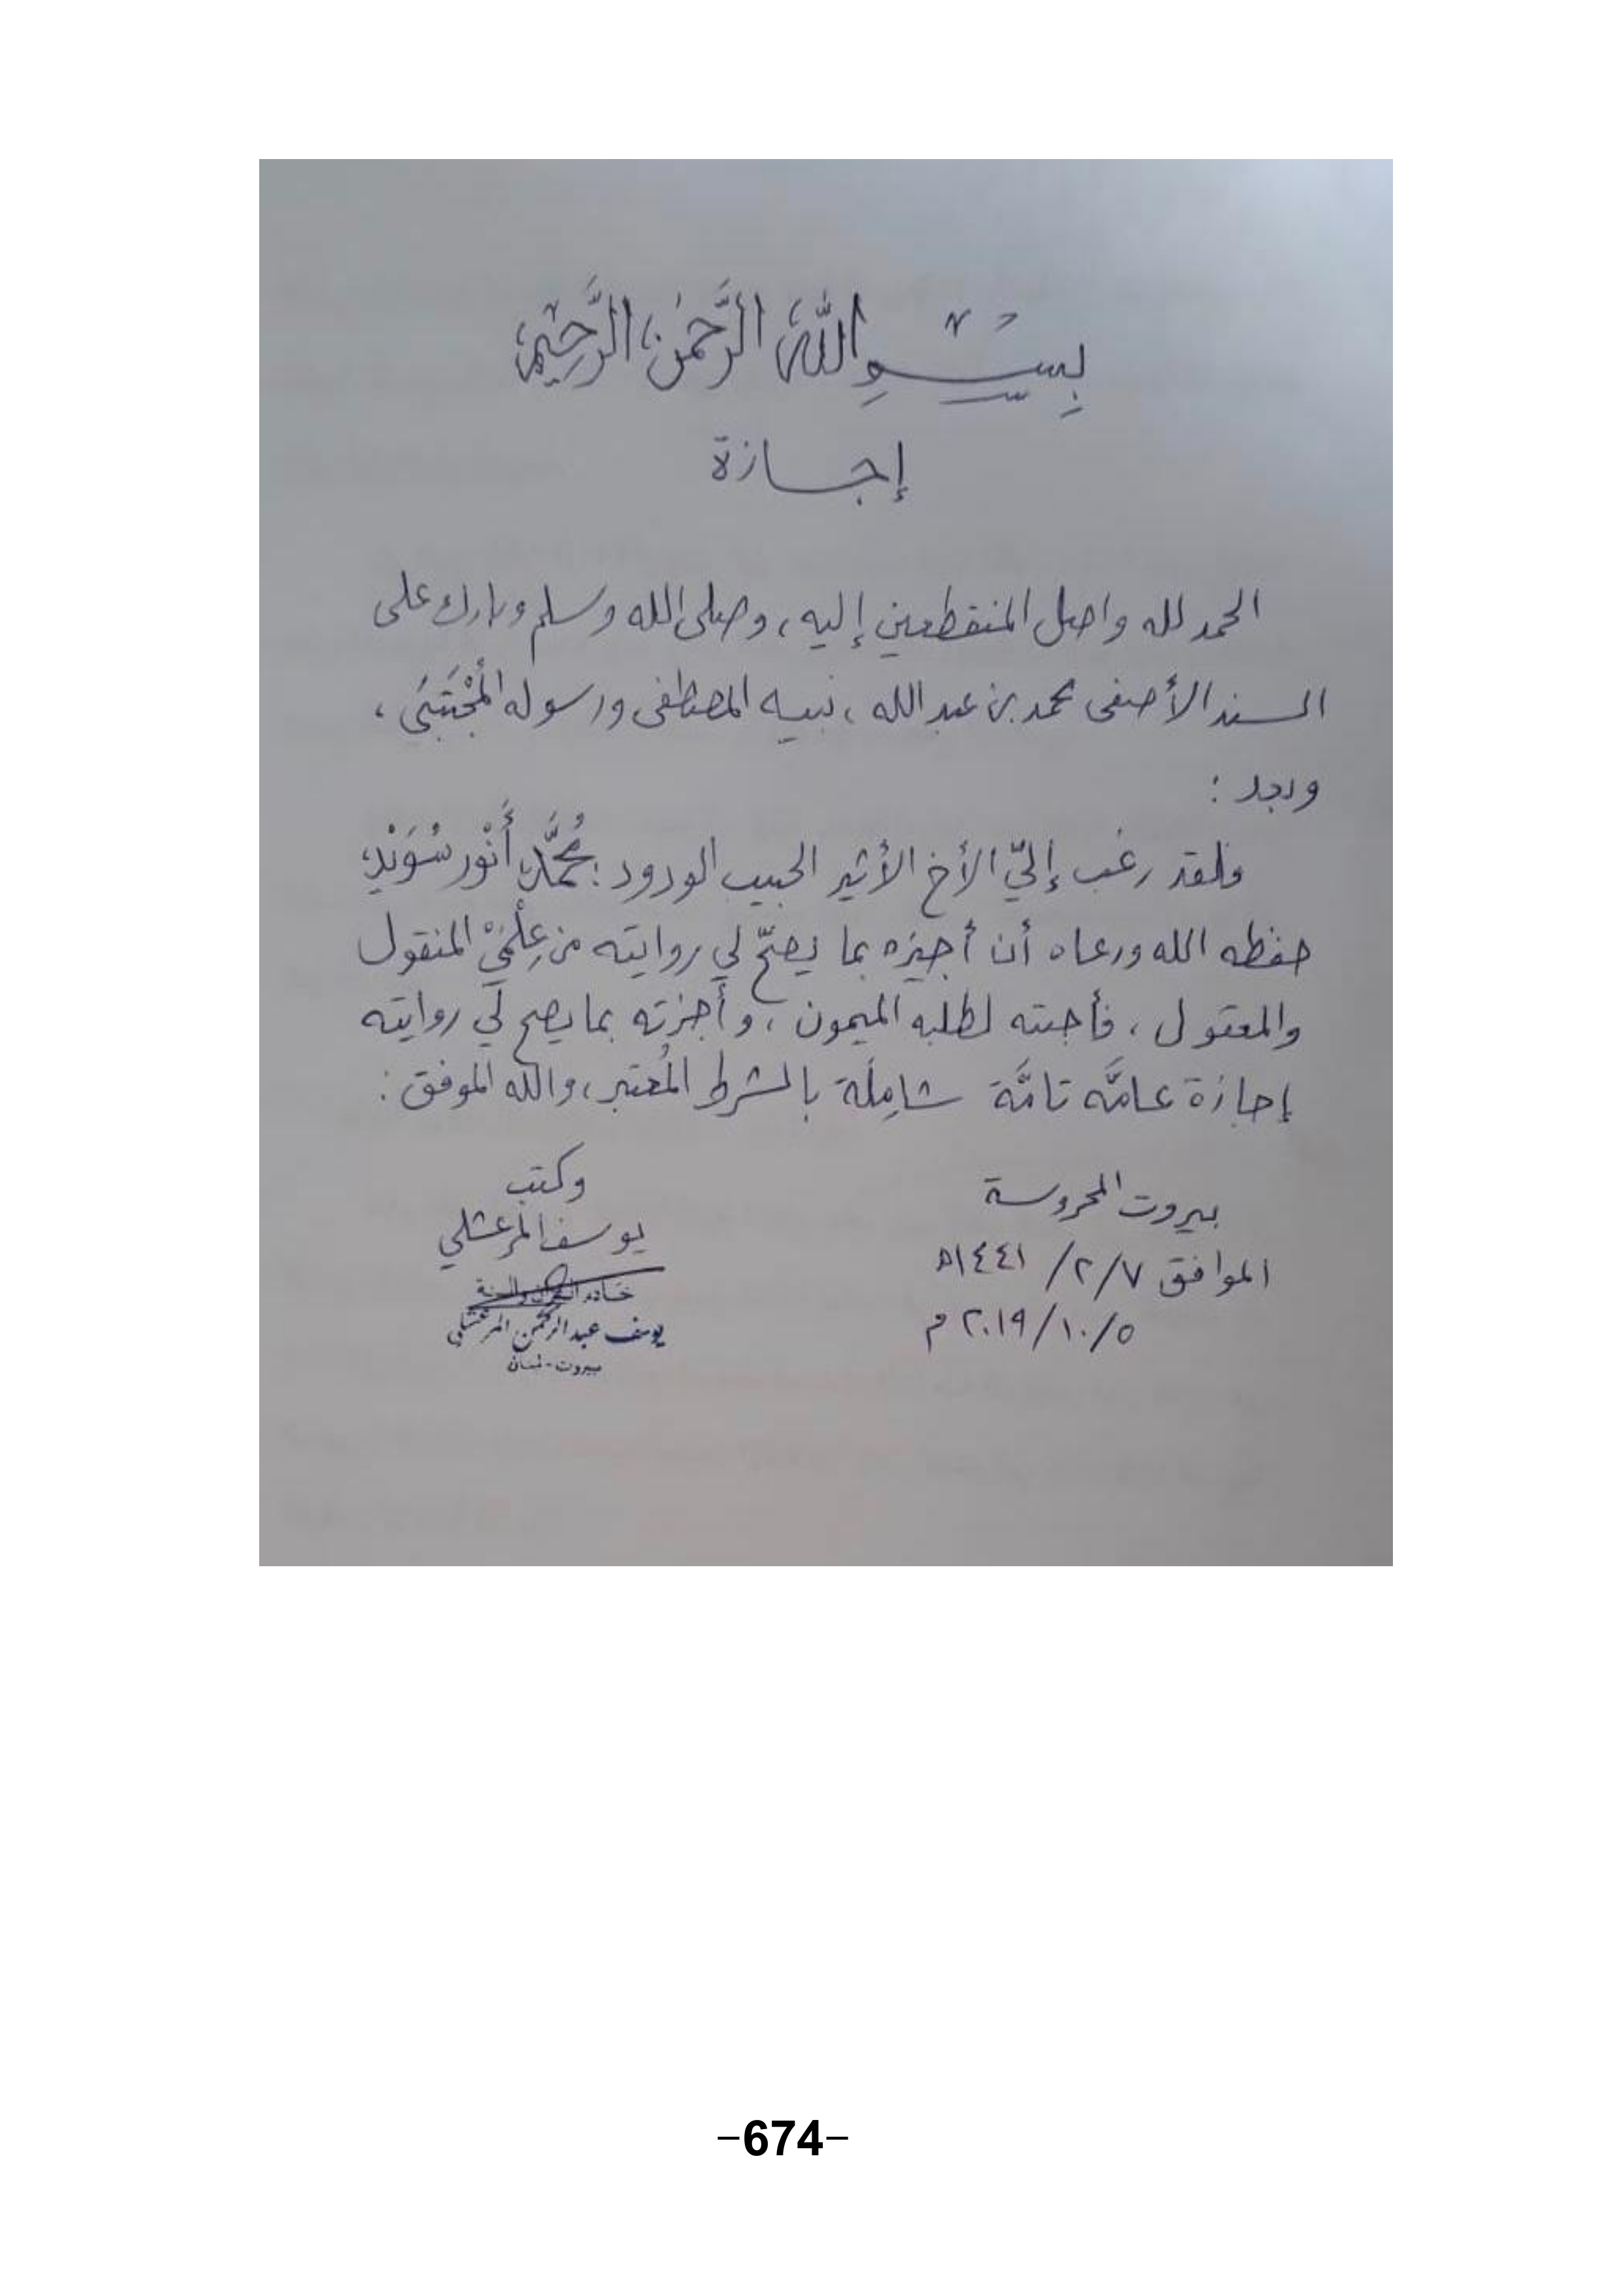 بِسْمِ اللهِ الرَّحْمٰنِ الرَّحِيْمِ
إجازة
الحمد لله واصل المنقطعين إليه، وصلى الله وسلم وبارك على
السند الأصفى محمد بن عبد الله، نبيه المصطفى ورسوله المُجْتَبَى،
وبعد:
فلقد رغب إليّ الأخ الأثير الحبيب الودود: مُحَمَّد أَنْوَر سُوَيْد،
حفظه الله ورعاه أن أجيزه بما يصحّ لي روايته من عِلْمَيْ المنقول
والمعقول، فأجبته لطلبه الميمون، وأجزته بما يصح لي روايته
إجازة عامَّة تامَّة شامِلَة بالشرط المُعتبر، والله الموفق:
بيروت المحروسة
الموافق ٧/٢/١٤٤١هـ
٥/١٠/٢٠١٩م
وكتب
يوسف المرعشلي
خادم القرآن والسنة
يوسف عبد الرحمن المرعشلي
بيروت - لبنان
-674-